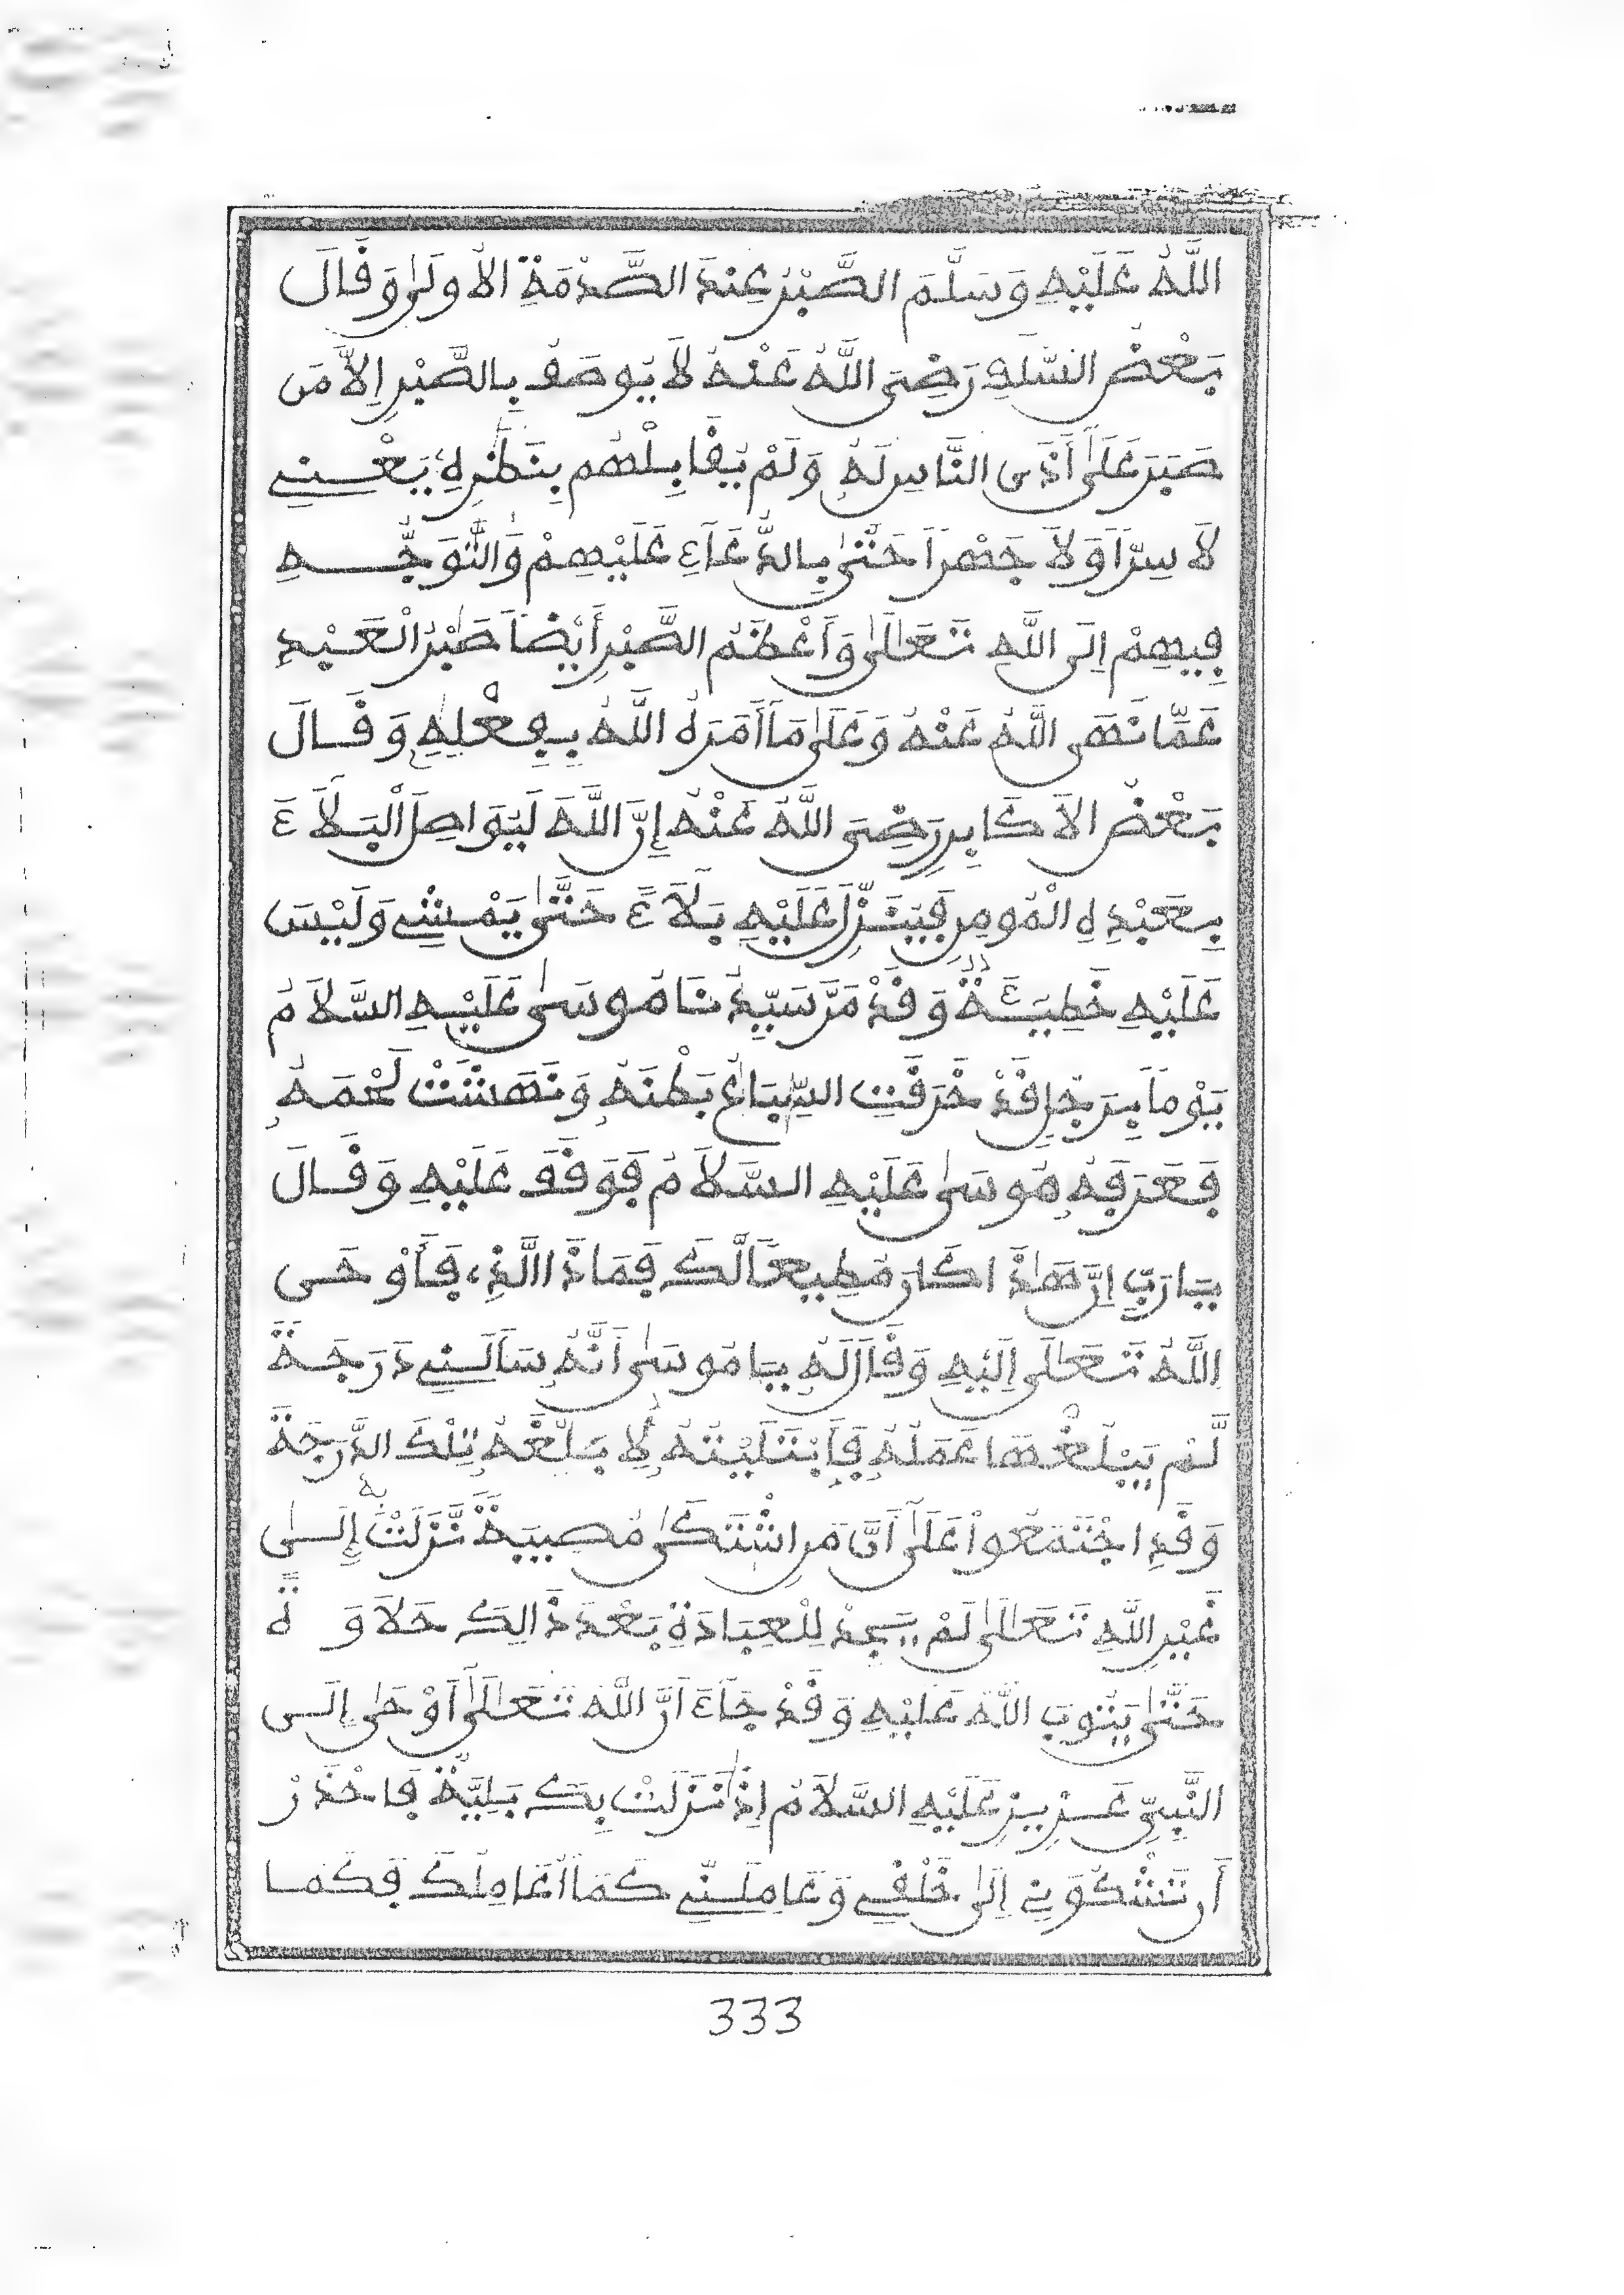 اللَّهُ عَلَيْهِ وَسَلَّمَ الصَّبْرُ عِندَ الصَّدْمَةِ الاُولَىٰ وَقَالَ
بَعْضُ السَّلَفِ رَضِىَ اللَّهُ عَنْهُ لَا يُوصَفُ بِالصَّبْرِ إِلاَّ مَن
صَبَرَ عَلَىٰٓ أَذَى النَّاسِ لَهُ وَلَمْ يُقَابِلْهُم بِنَظِيرِهِۦ يَعْنِى
لَا سِرّاً وَلَا جَهْراً حَتَّىٰ بِالدُّعَآءِ عَلَيْهِمْ وَالتَّوَجُّهِ
فِيهِمْ إِلَى اللَّهِ تَعَالَىٰ وَأَعْظَمُ الصَّبْرِ أَيْضاً صَبْرُ الْعَبْدِ
عَمَّا نَهَى اللَّهُ عَنْهُ وَعَلَىٰ مَآ أَمَرَهُ اللَّهُ بِفِعْلِهِ وَقَالَ
بَعْضُ الاَكَابِرِ رَضِىَ اللَّهُ عَنْهُ إِنَّ اللَّهَ لَيُوَاصِلُ الْبَلَآءَ
بِعَبْدِهِ الْمُومِنِ فَيُنَزِّلُ عَلَيْهِ بَلَآءً حَتَّىٰ يَمْشِى وَلَيْسَ
عَلَيْهِ خَطِيَئَةٌ وَقَدْ مَرَّ سَيِّدُنَا مُوسَىٰ عَلَيْهِ السَّلَامُ
يَوْماً بِرَجُلٍ قَدْ خَرَقَتِ السِّبَاعُ بَطْنَهُ وَنَهَشَتْ لَحْمَهُ
فَعَرَفَهُ مُوسَىٰ عَلَيْهِ السَّلَامُ فَوَقَفَ عَلَيْهِ وَقَالَ
يَا رَبِّ إِنَّ هَٰذَا كَانَ مُطِيعاً لَّكَ فَمَا ذَا الَّذِى فَأَوْحَى
اللَّهُ تَعَالَى إِلَيْهِ وَقَالَ لَهُ يَا مُوسَىٰ أَنَّهُ سَأَلَنِى دَرَجَةً
لَّمْ يَبْلُغْهَا عَمَلُهُ فَابْتَلَيْتُهُ لِأُبَلِّغَهُ تِلْكَ الدَّرَجَةَ
وَقَدِ اجْتَمَعُواْ عَلَىٰٓ أَنَّ مَنِ اشْتَكَىٰ مُصِيبَةً نَّزَلَتْ بِهِ إِلَىٰ
غَيْرِ اللَّهِ تَعَالَىٰ لَمْ يَجِدْ لِلْعِبَادَةِ بَعْدَ ذَالِكَ حَلَاوَةً
حَتَّىٰ يَتُوبَ اللَّهُ عَلَيْهِ وَقَدْ جَآءَ أَنَّ اللَّهَ تَعَالَىٰٓ أَوْحَىٰ إِلَى
النَّبِىِّ عَزِيزٍ عَلَيْهِ السَّلَامُ إِذَا نَزَلَتْ بِكَ بَلِيَّةٌ فَاحْذَرْ
أَن تَشْكُوَنِى إِلَىٰ خَلْقِى وَعَامِلْنِى كَمَآ أُعَامِلُكَ فَكَمَا
333